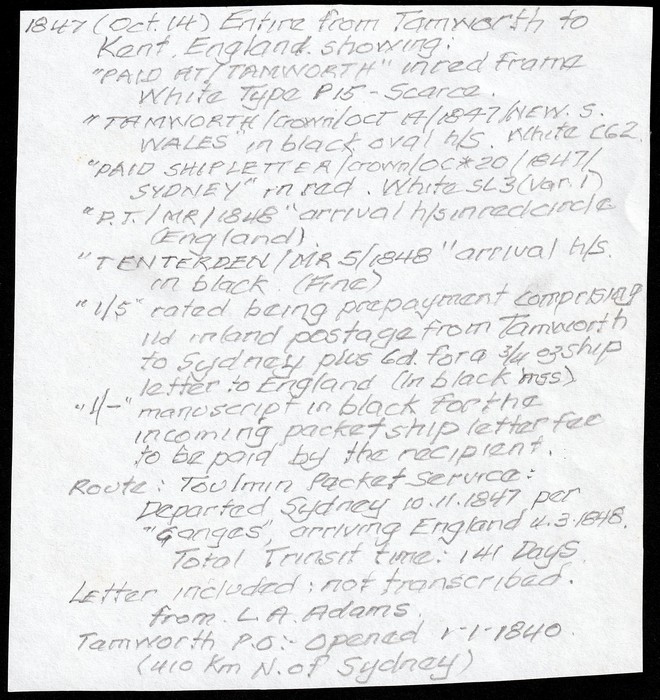 1847 (Oct. 14) Entire from Tamworth to
Kent, England. showing:
"PAID AT/TAMWORTH" in red frame
White Type P15 - Scarce.
"TAMWORTH/crown/OCT 14/1847/NEW. S.
WALES" in black oval h/s. White C62.
"PAID SHIP LETTER/crown/OC*20/1847/
SYDNEY" in red. White SL3 (Var. 1)
"P.T./MR/1848" arrival h/s in red circle
(England).
"TENTERDEN/MR 5/1848" arrival h/s.
in black. (Fine)
"1/5" rated being prepayment comprising
11d inland postage from Tamworth
to Sydney plus 6d. for a 3/4 oz ship
letter to England (in black mss)
"1/-" manuscript in black for the
incoming packet ship letter fee
to be paid by the recipient.
Route: Toulmin Packet Service:
Departed Sydney 10.11.1847 per
"Ganges", arriving England 4.3.1848.
Total Transit time: 141 Days.
Letter included: not transcribed.
from L.A. Adams.
Tamworth P.O:- Opened 1-1-1840.
(410 Km N. of Sydney)